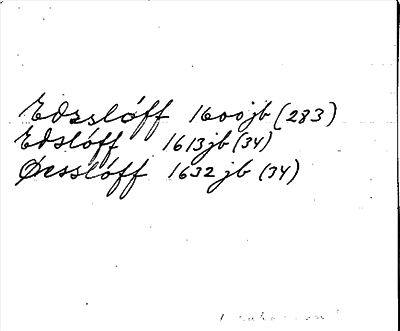 Edsslóff 1600jb (283)
Edslóff 1613jb (34)
Øesslóff 1632jb (34)